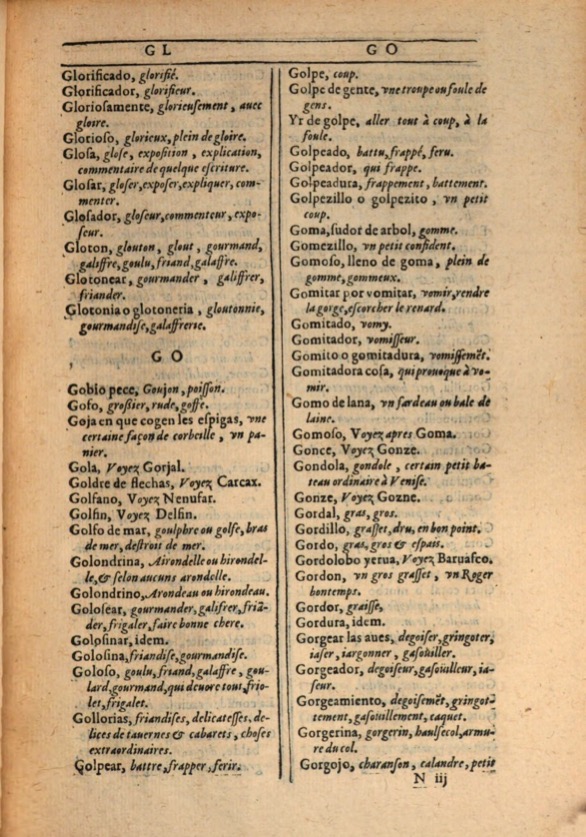 GL
Glorificado, glorifié.
Glorificador, glorifieur.
Gloriosamente, glorieusement, auec
gloire.
Glorioso, glorieux, plein de gloire.
Glosa, glose, exposition, explication,
commentaire de quelque escriture.
Glosar, gloser, exposer, expliquer, com-
menter.
Glosador, gloseur, commenteur, expo-
seur.
Gloton, glouton, glout, gourmand,
galiffre, goulu, friand, galaffre.
Glotonear, gourmander, galiffrer,
friander.
Glotonia o glotoneria, gloutonnie,
gourmandise, galaffrerie.
GO
Gobio pece, Goujon, poisson.
Gofo, grossier, rude, goffe.
Goja en que cogen les espigas, vne
certaine façon de corbeille, vn pa-
nier.
Gola, Voyez Gorjal.
Goldre de flechas, Voyez Carcax.
Golfano, Voyez Nenufar.
Golfin, Voyez Delfin.
Golfo de mar, goulphre ou golfe, bras
de mer, destroit de mer.
Golondrina, Airondelle ou hirondel-
le, & selon aucuns arondelle.
Golondrino, Arondeau ou hirondeau.
Golosear, gourmander, galifrer, friã-
der, frigaler, faire bonne chere.
Golosinar, idem.
Golosina, friandise, gourmandise.
Goloso, goulu, friand, galaffre, gou-
lard, gourmand, qui deuore tout, frio-
let, frigalet.
Gollorias, friandises, delicatesses, de-
lices de tauernes & cabarets, choses
extraordinaires.
Golpear, battre, frapper, ferir.
GO
Golpe, coup.
Golpe de gente, vne troupe ou foule de
gens.
Yr de golpe, aller tout à coup, à la
foule.
Golpeado, battu, frappé, feru.
Golpeador, qui frappe.
Golpeadura, frappement, battement.
Golpezillo o golpezito, vn petit
coup.
Goma, sudor de arbol, gomme.
Gomezillo, vn petit confident.
Gomoso, lleno de goma, plein de
gomme, gommeux.
Gomitar por vomitar, vomir, rendre
la gorge, escorcher le renard.
Gomitado, vomy.
Gomitador, vomisseur.
Gomito o gomitadura, vomissemẽt.
Gomitadora cosa, qui prouoque à vo-
mir.
Gomo de lana, vn fardeau ou bale de
laine.
Gomoso, Voyez apres Goma.
Gonce, Voyez Gonze.
Gondola, gondole, certain petit ba-
teau ordinaire à Venise.
Gonze, Voyez Gozne.
Gordal, gras, gros.
Gordillo, grasset, dru, en bon point.
Gordo, gras, gros & espais.
Gordolobo yerua, Voyez Baruasco.
Gordon, vn gros grasset, vn Roger
bontemps.
Gordor, graisse,
Gordura, idem.
Gorgear las aues, degoiser, gringoter,
iaser, iargonner, gasouiller.
Gorgeador, degoiseur, gasouilleur, ia-
seur.
Gorgeamiento, degoisemẽt, gringot-
tement, gasouillement, caquet.
Gorgerina, gorgerin, haulsecol, armu-
re du col.
Gorgojo, charanson, calandre, petit
N iij